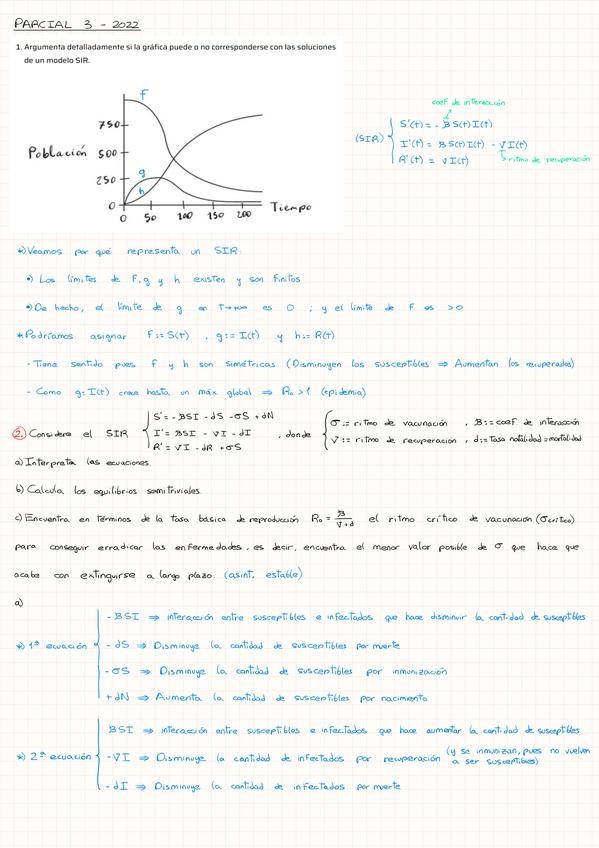 PARCIAL 3 - 2022
1. Argumenta detalladamente si la gráfica puede o no corresponderse con las soluciones
de un modelo SIR.
f
750
Población 500
250 g
h
0
0 50 100 150 200 Tiempo
coef. de interacción
(SIR) { S'(t) = - β S(t) I(t)
I'(t) = β S(t) I(t) - V I(t)
R'(t) = V I(t)
ritmo de recuperación
*) Veamos por qué representa un SIR:
•) Los límites de F, g y h existen y son finitos
•) De hecho, el límite de g en T→+∞ es 0 ; y el límite de F es >0
* Podríamos asignar F:= S(t) , g:= I(t) y h:= R(t)
- Tiene sentido pues f y h son simétricas (Disminuyen los susceptibles ⇒ Aumentan los recuperados)
- Como g: I(t) crece hasta un máx global ⇒ R₀ > 1 (epidemia)
2. Considere el SIR { S' = - βSI - dS - σS + dN
I' = βSI - VI - dI
R' = VI - dR + σS
, donde { σ := ritmo de vacunación , β := coef de interacción
V := ritmo de recuperación , d := Tasa natalidad = mortalidad
a) Interpreta las ecuaciones.
b) Calcula los equilibrios semitriviales
c) Encuentra en términos de la tasa básica de reproducción R₀ = β/(V+d) el ritmo crítico de vacunación (σcrítico)
para conseguir erradicar las enfermedades, es decir, encuentra el menor valor posible de σ que hace que
acabe con extinguirse a largo plazo (asint. estable)
a)
*) 1ª ecuación { - βSI ⇒ interacción entre susceptibles e infectados que hace disminuir la cantidad de susceptibles
- dS ⇒ Disminuye la cantidad de susceptibles por muerte
- σS ⇒ Disminuye la cantidad de susceptibles por inmunización
+ dN ⇒ Aumenta la cantidad de susceptibles por nacimiento
*) 2ª ecuación { βSI ⇒ interacción entre susceptibles e infectados que hace aumentar la cantidad de susceptibles
- VI ⇒ Disminuye la cantidad de infectados por recuperación (y se inmunizan, pues no vuelven
a ser susceptibles)
- dI ⇒ Disminuye la cantidad de infectados por muerte